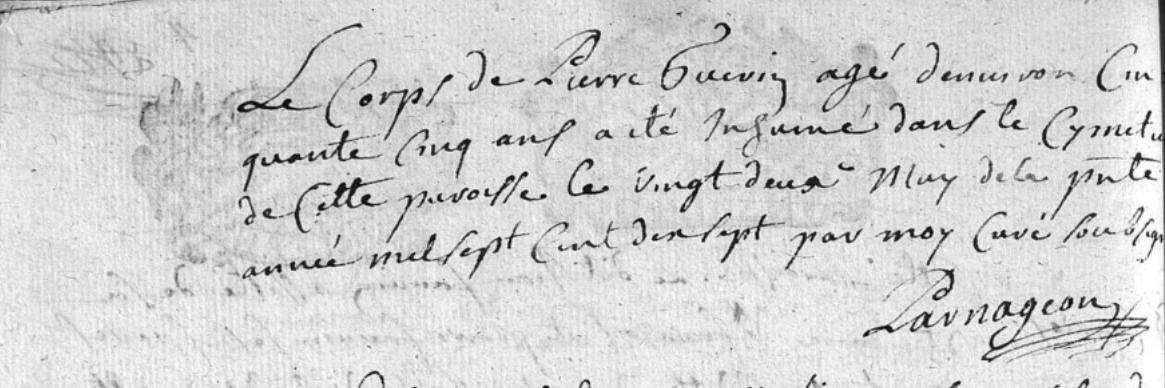 Le Corps de Pierre Guerin agé denviron Cin
quante Cinq ans a eté Inhumé dans le Cymeti
de Cette paroisse le vingt deux e May de la pnte
année mil sept Cent dix sept par moy Curé soubsign
Parnageon